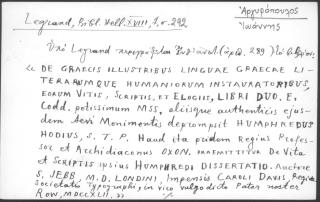 Legrand, Bibl. Hell. XVIII, 1, σ. 292
Ἀργυρόπουλος
Ἰωάννης
Ὑπὸ Legrand περιγράφεται
« DE GRAECIS ILLUSTRIBUS LINGUAE GRAECAE LI-
TERARUMQUE HUMANIORUM INSTAURATORIBUS,
EORUM VITIS, SCRIPTIS, ET ELOGIIS, LIBRI DUO. E
Codd. potissimum MSS, aliisque authenticis ejus-
dem Aevi Monimentis deprompsit HUMPHREDUS
HODIUS, S. T. P. Haud ita pridem Regius Profes-
sor et Archidiaconus OXON. PRAEMITTITUR De Vita
et SCRIPTIS ipsius HUMPHREDI DISSERTATIO. Auctore
S. JEBB M.D. LONDINI, Impensis CAROLI DAVIS, Regiae
Societatis Typographi, in vico vulgo dicto Pater noster
Row, MDCCXLII. »